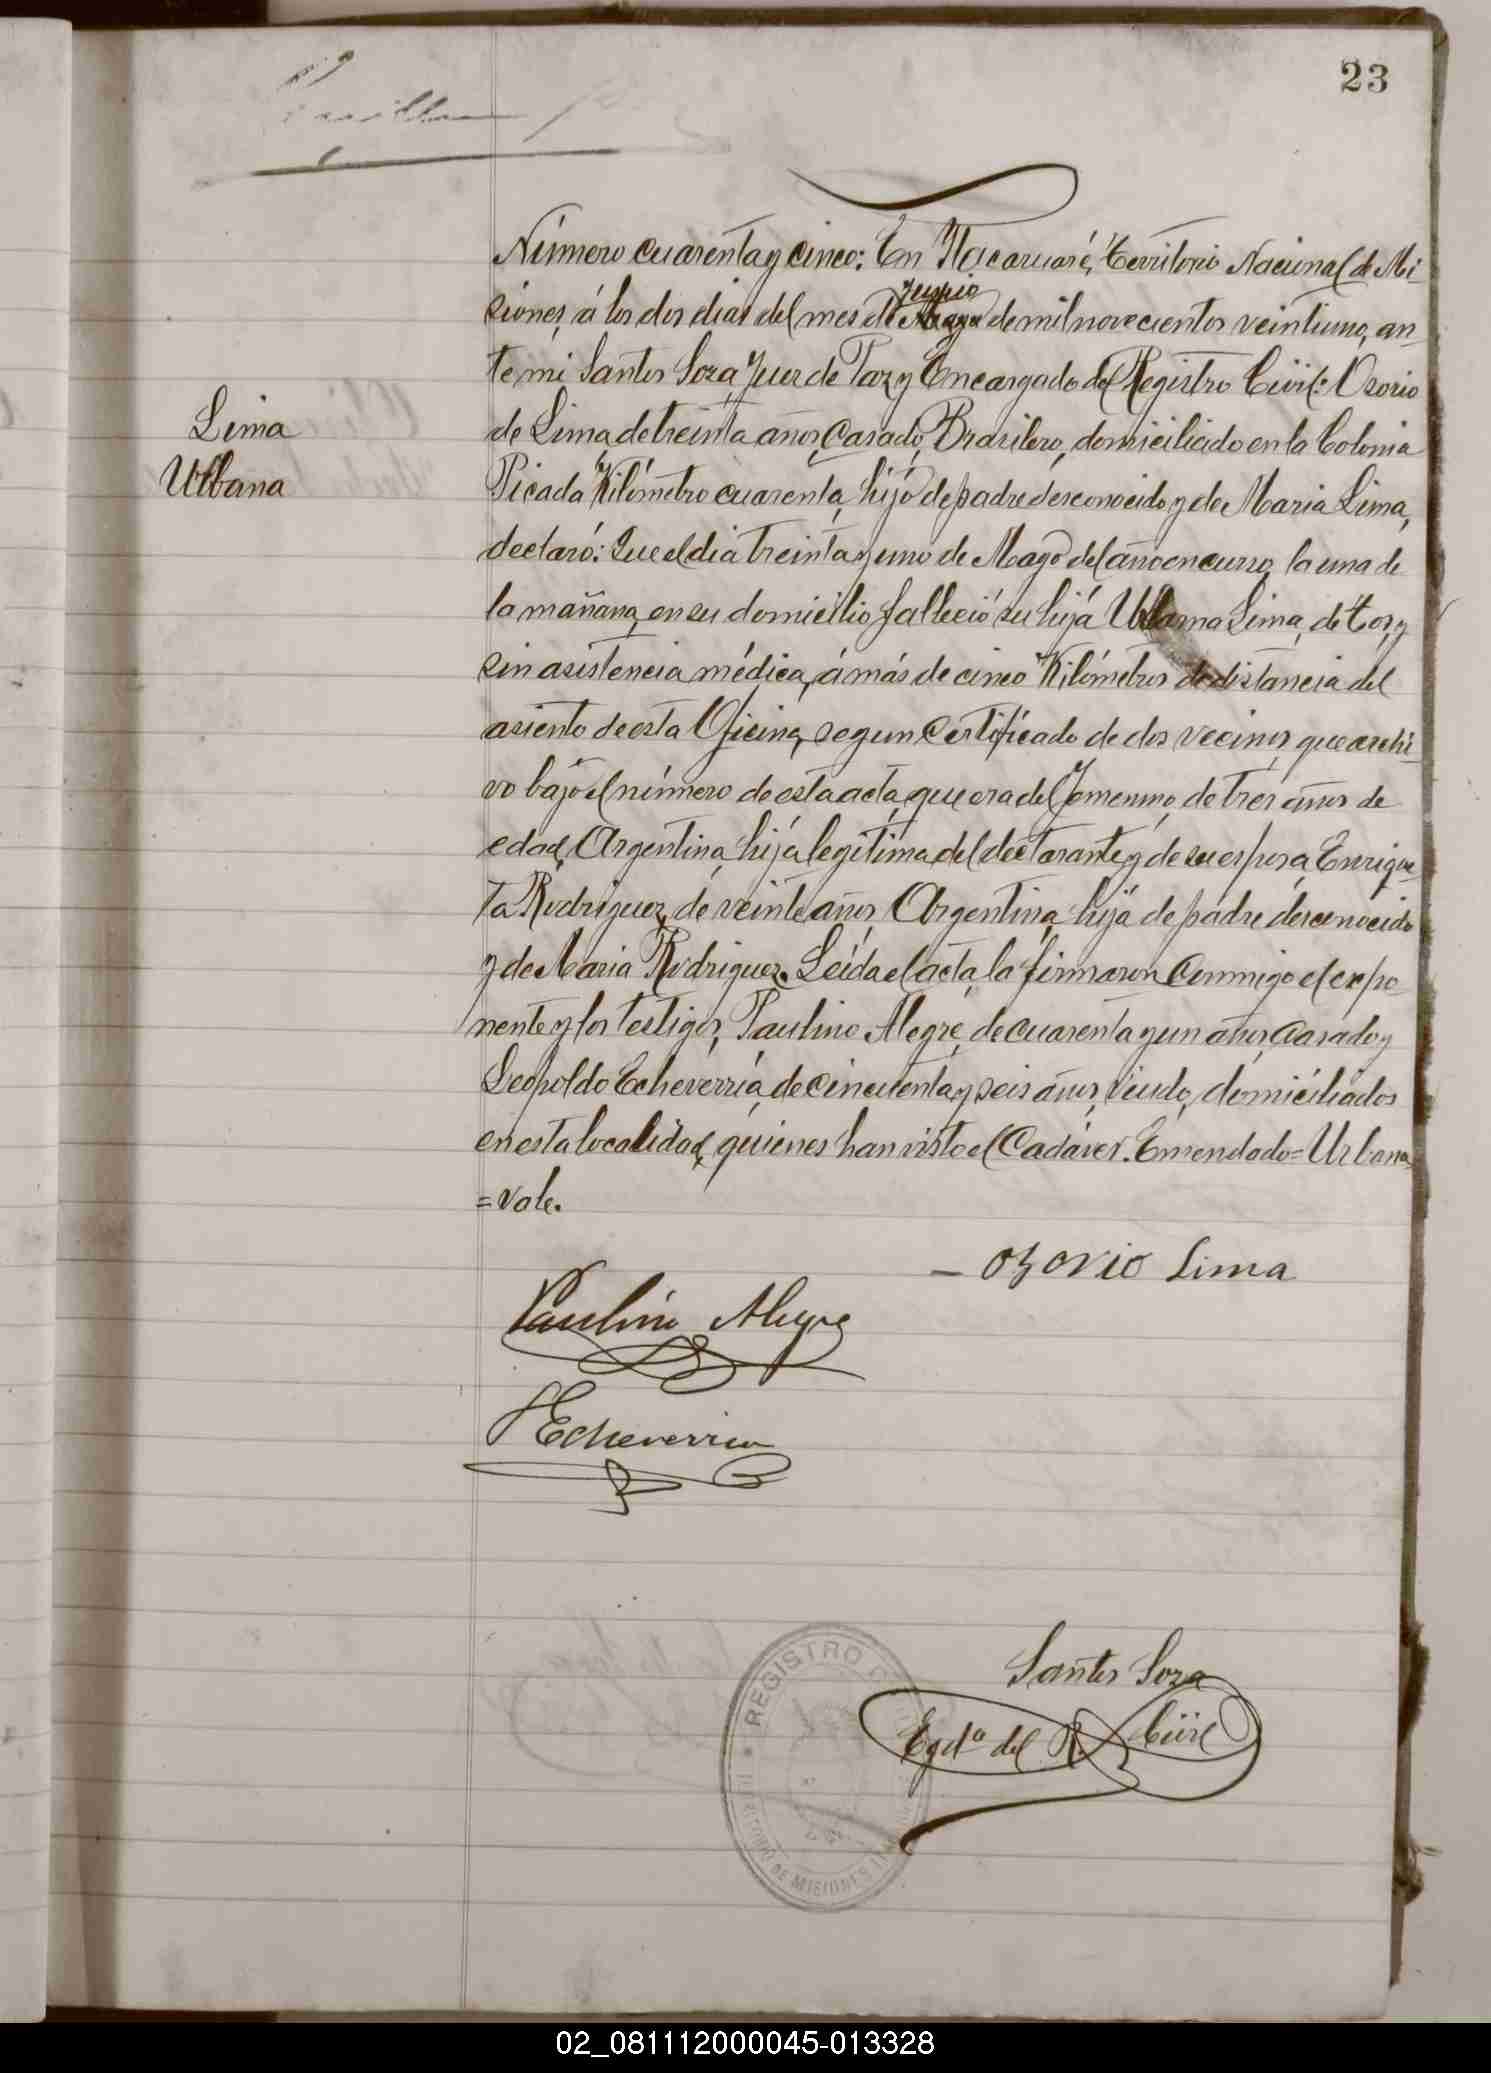 23
Número cuarenta y cinco: En Itacaruaré, Territorio Nacional de Mi-
siones, á los dos dias del mes de Mayo Junio de mil novecientos veintiuno, an-
te mi Santos Soza, Juez de Paz y Encargado del Registro Civil: Osorio
de Lima, de treinta años, Casado, Brasilero, domiciliado en la Colonia
Picada Kilómetro cuarenta, hijo de padre desconocido y de Maria Lima,
declaró: Que el dia treinta y uno de Mayo del año en curso, la una de
la mañana, en su domicilio falleció su hija Urbana Lima, de tos, y
sin asistencia médica, á más de cinco Kilómetros de distancia del
asiento de esta Oficina, segun Certificado de dos vecinos, que archi-
vo bajo el número de esta acta, que era del femenino, de tres años de
edad, Argentina, hija legitima del declarante y de su esposa Enrique-
ta Rodriguez, de veinte años, Argentina, hija de padre desconocido
y de Maria Rodriguez. Leida el acta, la firmaron Conmigo el expo-
nente y los testigos, Paulino Alegre, de cuarenta y un años, casado y
Leopoldo Echeverría, de cincuenta y seis años, Viudo, domiciliados
en esta localidad, quienes han visto el Cadáver. Emendado=Urbana
=Vale.
Lima
Urbana
— Ozorio Lima
Paulino Alegre
Echeverria
Santos Soza
Egdo del R. Civil
REGISTRO
TERRITORIO DE MISIONES
02_081112000045-013328